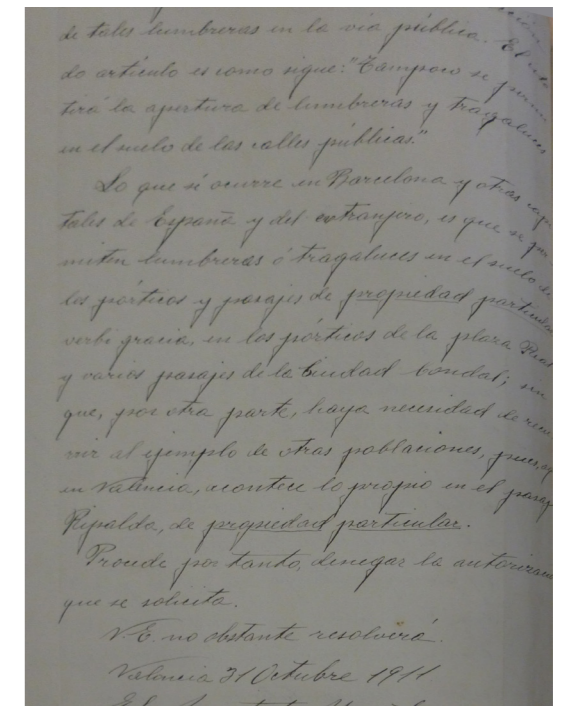 de tales lumbreras en la via pública. El
do artículo es como sigue: "Tampoco se permi
tirá la apertura de lumbreras y tragaluces
en el suelo de las calles públicas."
Lo que sí ocurre en Barcelona y otras capi
tales de España y del extranjero, es que se per
miten lumbreras ó tragaluces en el suelo de
los pórticos y pasajes de propiedad particular
verbi gracia, en los pórticos de la plaza Real
y varios pasajes de la Ciudad Condal; sin
que, por otra parte, haya necesidad de recu
rrir al ejemplo de otras poblaciones, pues, aq
en Valencia, acontece lo propio en el pasaj
Ripalda, de propiedad particular.
Procede por tanto, denegar la autorizaci
que se solicita.
V.E. no obstante resolverá.
Valencia 31 Octubre 1911
El